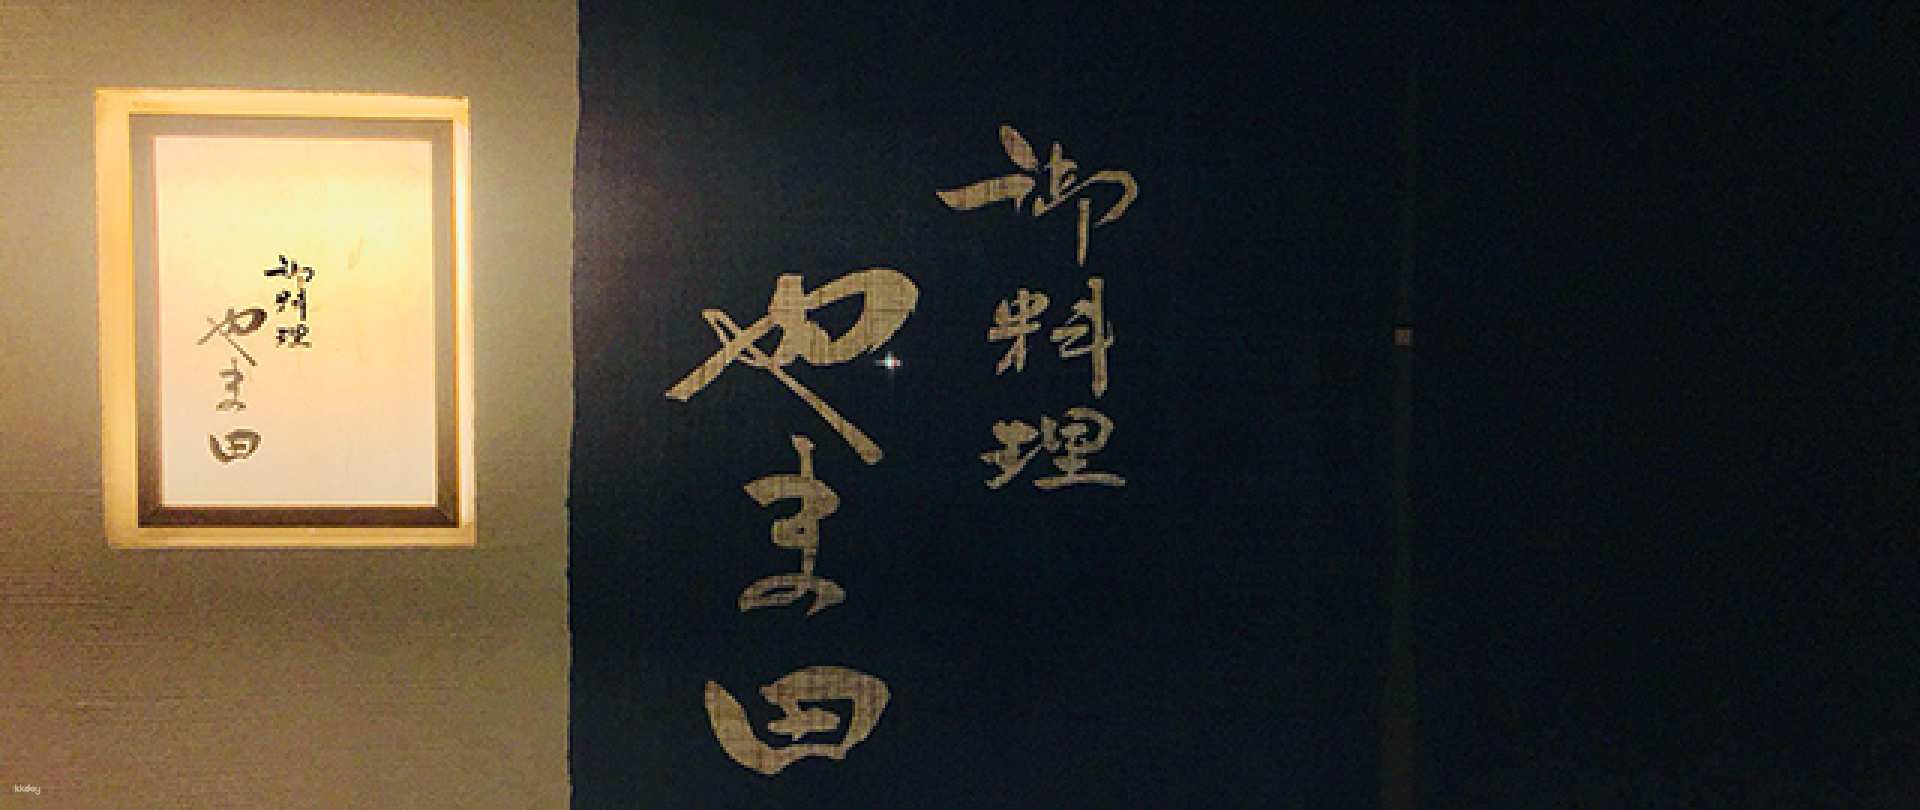 御料理
やま田
御料理
やま田
kkday